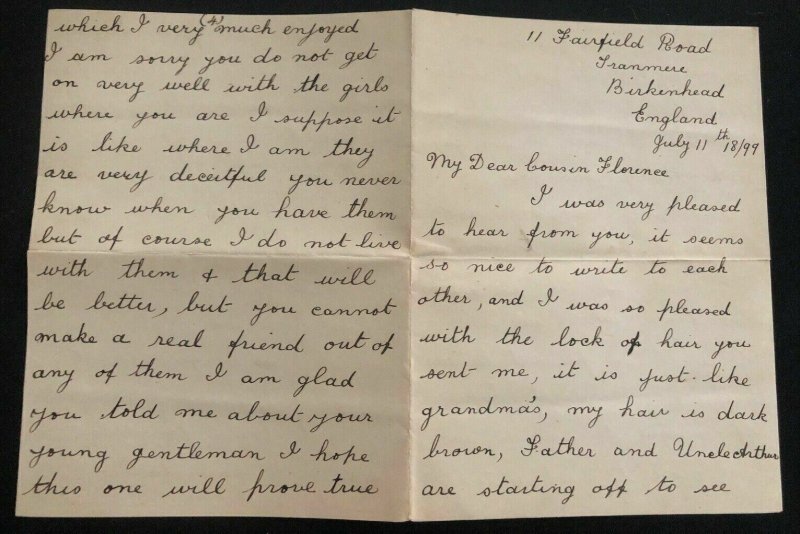 11 Fairfield Road
Tranmere
Birkenhead
England
July 11th 18/99
My Dear Cousin Florence
I was very pleased
to hear from you, it seems
so nice to write to each
other, and I was so pleased
with the lock of hair you
sent me, it is just like
grandma's, my hair is dark
brown, Father and Uncle Arthur
are starting off to see
(4)
which I very much enjoyed
I am sorry you do not get
on very well with the girls
where you are I suppose it
is like where I am they
are very deceitful you never
know when you have them
but of course I do not live
with them & that will
be better, but you cannot
make a real friend out of
any of them I am glad
you told me about your
young gentleman I hope
this one will prove true